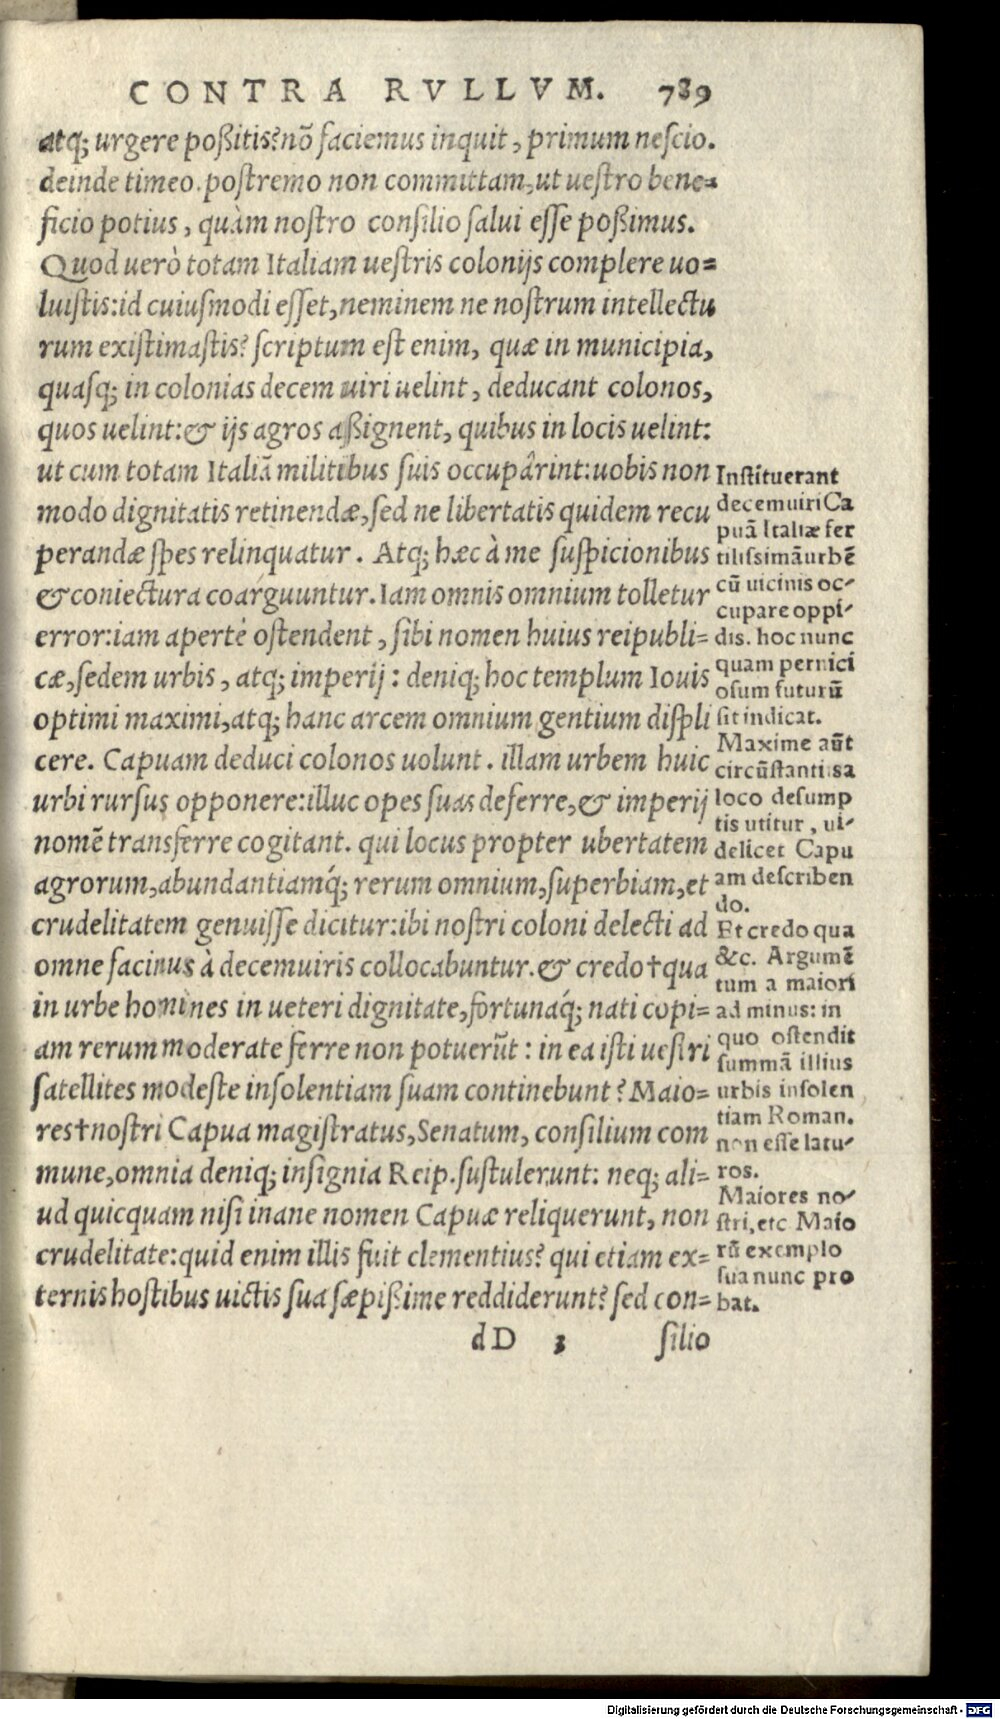 CONTRA RVLLVM. 789
atq; urgere poßitis? nõ faciemus inquit, primum nescio.
deinde timeo. postremo non committam, ut uestro bene=
ficio potius, quàm nostro consilio salui esse poßimus.
Quod uerò totam Italiam uestris colonijs complere uo=
luistis: id cuiusmodi esset, neminem ne nostrum intellectu
rum existimastis? scriptum est enim, quæ in municipia,
quasq; in colonias decem uiri uelint, deducant colonos,
quos uelint: & ijs agros aßignent, quibus in locis uelint:
ut cum totam Italiã militibus suis occupârint: uobis non
modo dignitatis retinendæ, sed ne libertatis quidem recu
perandæ spes relinquatur. Atq; hæc à me suspicionibus
& coniectura coarguuntur. Iam omnis omnium tolletur
error: iam apertè ostendent, sibi nomen huius reipubli=
cæ, sedem urbis, atq; imperij: deniq; hoc templum Iouis
optimi maximi, atq; hanc arcem omnium gentium displi
cere. Capuam deduci colonos uolunt. illam urbem huic
urbi rursus opponere: illuc opes suas deferre, & imperij
nomẽ transferre cogitant. qui locus propter ubertatem
agrorum, abundantiamq́; rerum omnium, superbiam, et
crudelitatem genuisse dicitur: ibi nostri coloni delecti ad
omne facinus à decemuiris collocabuntur. & credo † qua
in urbe homines in ueteri dignitate, fortunaq́; nati copi=
am rerum moderate ferre non potuerũt: in ea isti uestri
satellites modeste insolentiam suam continebunt? Maio=
res † nostri Capua magistratus, Senatum, consilium com
mune, omnia deniq; insignia Reip. sustulerunt: neq; ali=
ud quicquam nisi inane nomen Capuæ reliquerunt, non
crudelitate: quid enim illis fuit clementius? qui etiam ex=
ternis hostibus uictis sua sæpißime reddiderunt? sed con=
dD 3 silio
Instituerant
decemuiri Ca
puã Italiæ fer
tilissimã urbẽ
cũ uicinis oc-
cupare oppi-
dis. hoc nunc
quam pernici
osum futurũ
sit indicat.
Maxime aũt
circũstantiis a
loco desump
tis utitur, ui-
delicet Capu
am describen
do.
Et credo qua
&c. Argumẽ
tum a maiori
ad minus: in
quo ostendit
summã illius
urbis insolen
tiam Roman.
non esse latu-
ros.
Maiores no-
stri, etc Maio
rũ exemplo
sua nunc pro
bat.
Digitalisierung gefördert durch die Deutsche Forschungsgemeinschaft - DFG